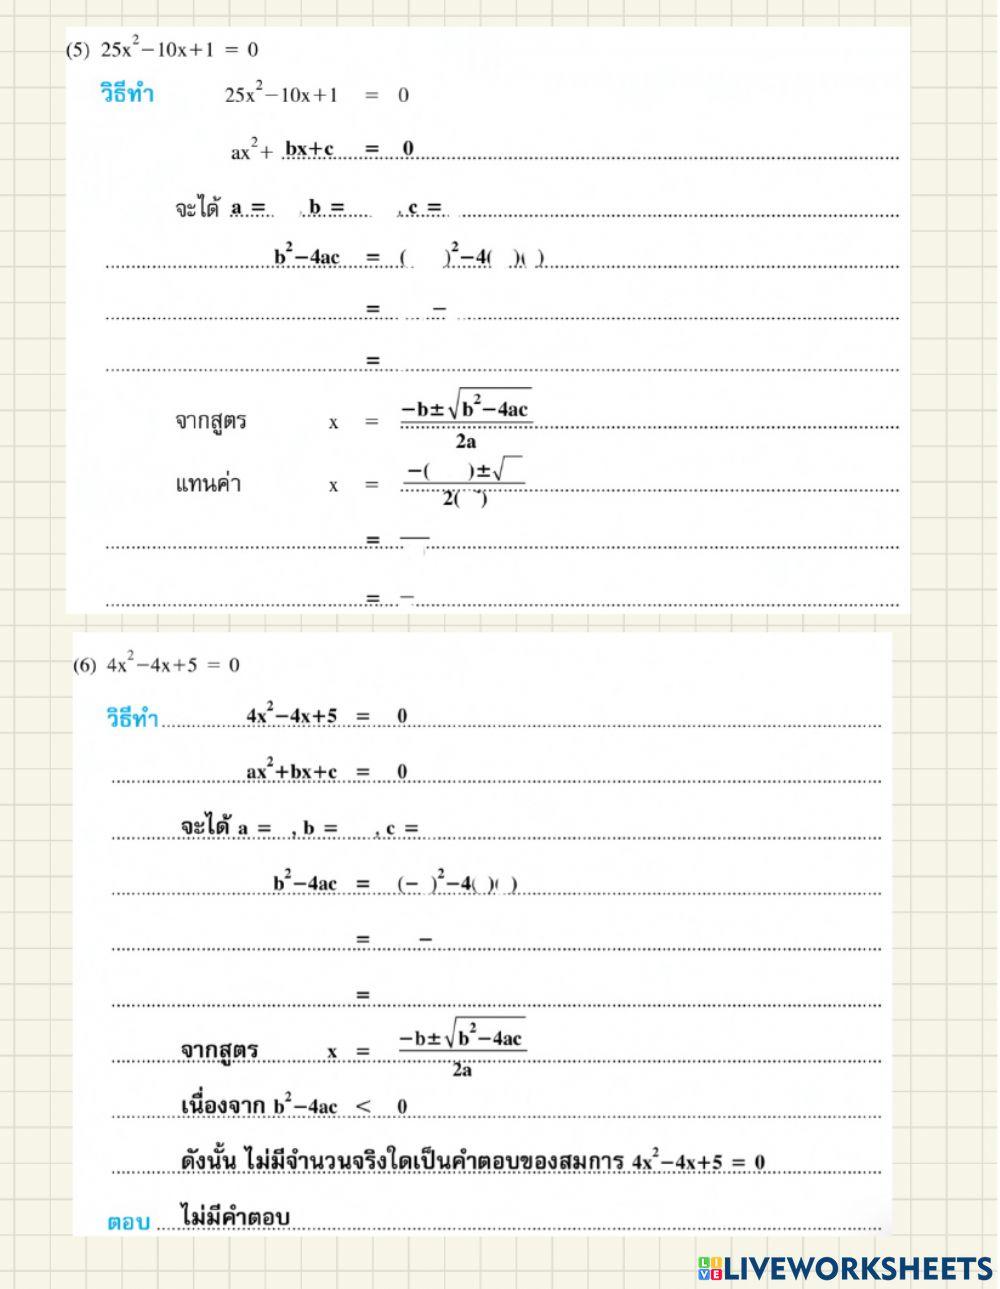 (5) 25x²−10x+1 = 0
วิธีทำ 25x²−10x+1 = 0
ax²+ bx+c = 0
จะได้ a = , b = , c =
b²−4ac = ( )²−4( )( )
= −
=
จากสูตร x = −b±√b²−4ac / 2a
แทนค่า x = −( )±√ / 2( )
= —
= −
(6) 4x²−4x+5 = 0
วิธีทำ 4x²−4x+5 = 0
ax²+bx+c = 0
จะได้ a = , b = , c =
b²−4ac = (− )²−4( )( )
= −
=
จากสูตร x = −b±√b²−4ac / 2a
เนื่องจาก b²−4ac < 0
ดังนั้น ไม่มีจำนวนจริงใดเป็นคำตอบของสมการ 4x²−4x+5 = 0
ตอบ ไม่มีคำตอบ
LIVE LIVEWORKSHEETS